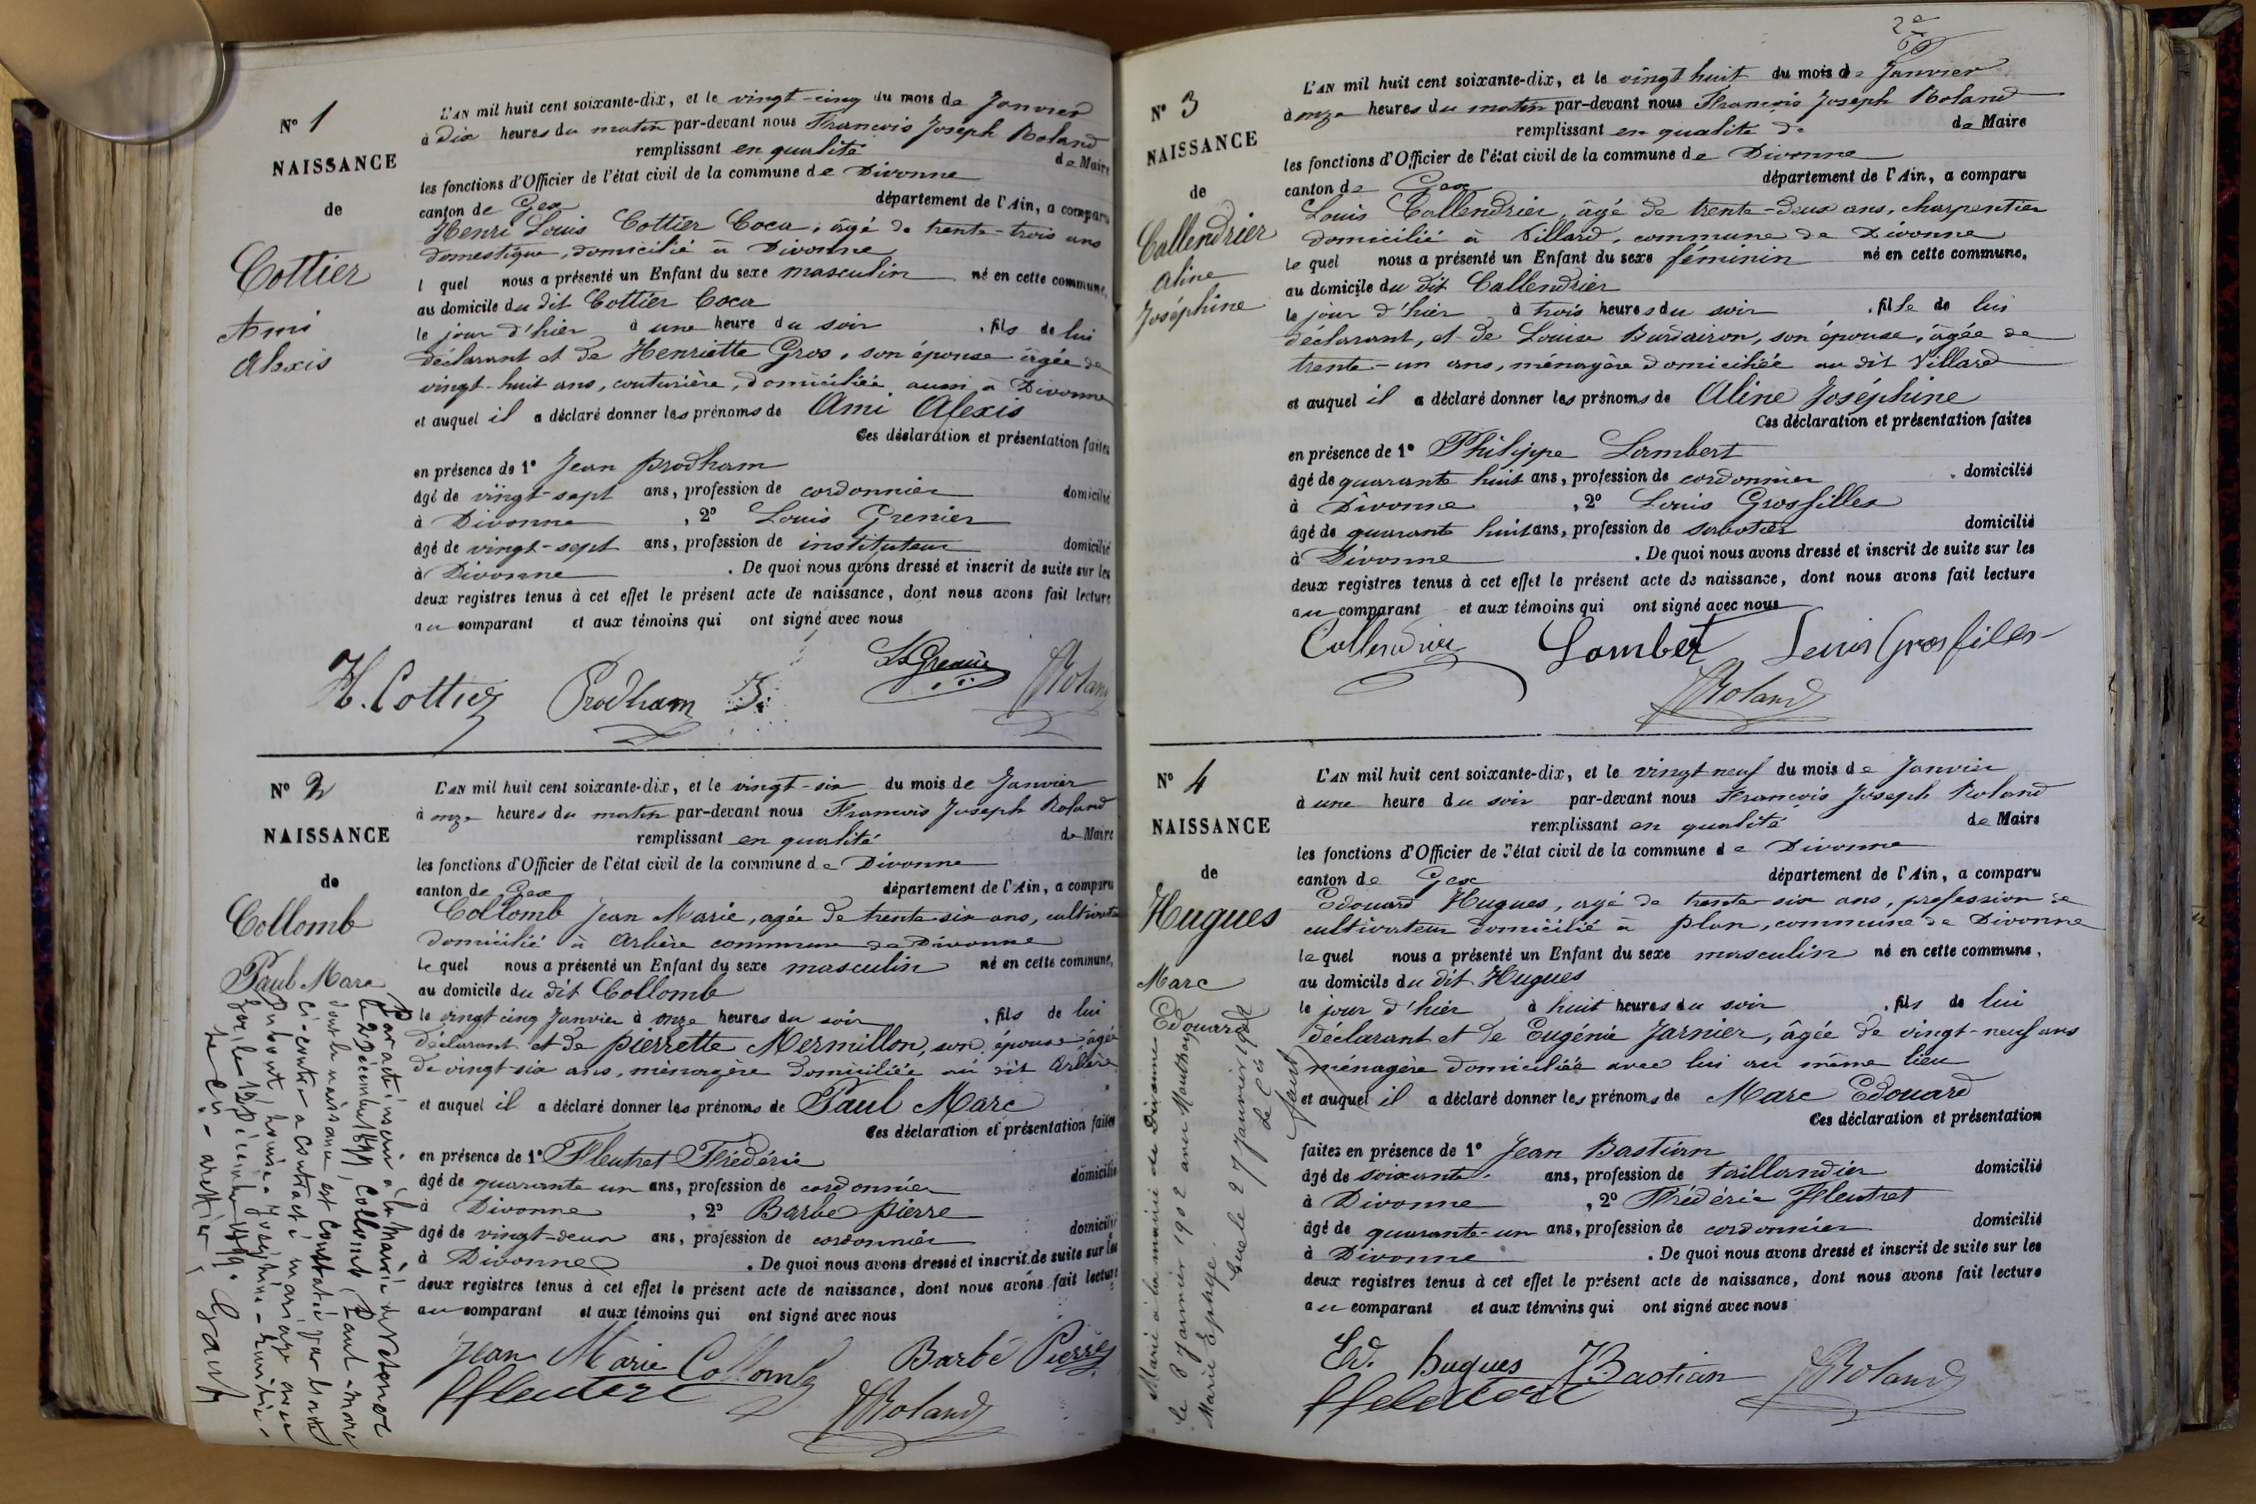 N° 1
NAISSANCE
de
Cottier
Ami
Alexis
L'AN mil huit cent soixante-dix, et le vingt-cinq du mois de Janvier
à dix heures du matin par-devant nous François Joseph Roland
remplissant en qualité de Maire
les fonctions d'Officier de l'état civil de la commune de Divonne
canton de Gex département de l'Ain, a comparu
Henri Louis Cottier Coca, âgé de trente-trois ans
domestique, domicilié à Divonne
l quel nous a présenté un Enfant du sexe masculin né en cette commune,
au domicile du dit Cottier Coca
le jour d'hier à une heure du soir, fils de lui
déclarant et de Henriette Gros, son épouse âgée de
vingt-huit ans, couturière, domiciliée aussi à Divonne
et auquel il a déclaré donner les prénoms de Ami Alexis
Ces déclaration et présentation faites
en présence de 1° Jean Prodham
âgé de vingt-sept ans, profession de cordonnier domicilié
à Divonne, 2° Louis Grenier
âgé de vingt-sept ans, profession de instituteur domicilié
à Divonne. De quoi nous avons dressé et inscrit de suite sur les
deux registres tenus à cet effet le présent acte de naissance, dont nous avons fait lecture
au comparant et aux témoins qui ont signé avec nous
H. Cottier Prodham J. Ls Grenier FJRoland
N° 2
NAISSANCE
de
Collomb
Paul Marc
Par acte inscrit à la mairie de
le 22 Décembre 1899, Collomb Paul-Marc
dont la naissance est constatée par l'acte
ci-contre a contracté mariage avec
Dubout, Louise
Gex, le Décembre 1899.
Le Cis-greffier,
L'AN mil huit cent soixante-dix, et le vingt-six du mois de Janvier
à onze heures du matin par-devant nous François Joseph Roland
remplissant en qualité de Maire
les fonctions d'Officier de l'état civil de la commune de Divonne
canton de Gex département de l'Ain, a comparu
Collomb Jean Marie, agée de trente six ans, cultivateur
domicilié à Arbère commune de Divonne
le quel nous a présenté un Enfant du sexe masculin né en cette commune,
au domicile du dit Collomb
le vingt cinq Janvier à onze heures du soir, fils de lui
déclarant et de pierrette Mermillon, son épouse âgée
de vingt-six ans, ménagère domiciliée au dit Arbère
et auquel il a déclaré donner les prénoms de Paul Marc
Ces déclaration et présentation faites
en présence de 1° Fleutret Frédéric
âgé de quarante un ans, profession de cordonnier domicilié
à Divonne, 2° Barbe pierre
âgé de vingt-deux ans, profession de cordonnier domicilié
à Divonne. De quoi nous avons dressé et inscrit de suite sur les
deux registres tenus à cet effet le présent acte de naissance, dont nous avons fait lecture
au comparant et aux témoins qui ont signé avec nous
Jean Marie Collomb Barbé Pierre
FFleutret FJRoland
N° 3
NAISSANCE
de
Callendrier
Aline
Joséphine
L'AN mil huit cent soixante-dix, et le vingt huit du mois de Janvier
à onze heures du matin par-devant nous François Joseph Roland
remplissant en qualité de de Maire
les fonctions d'Officier de l'état civil de la commune de Divonne
canton de Gex département de l'Ain, a comparu
Louis Callendrier, âgé de trente-deux ans, charpentier
domicilié à Villard, commune de Divonne
le quel nous a présenté un Enfant du sexe féminin né en cette commune,
au domicile du dit Callendrier
le jour d'hier à trois heures du soir, fille de lui
déclarant, et de Louise Burdairon, son épouse, âgée de
trente-un ans, ménagère domiciliée au dit Villard
et auquel il a déclaré donner les prénoms de Aline Joséphine
Ces déclaration et présentation faites
en présence de 1° Philippe Lambert
âgé de quarante huit ans, profession de cordonnier, domicilié
à Divonne, 2° Louis Grosfilles
âgé de quarante huit ans, profession de sabotier domicilié
à Divonne. De quoi nous avons dressé et inscrit de suite sur les
deux registres tenus à cet effet le présent acte de naissance, dont nous avons fait lecture
au comparant et aux témoins qui ont signé avec nous
Callendrier Lambert Louis Grosfilles
FJRoland
N° 4
NAISSANCE
de
Hugues
Marc
Edouard
Marié à la mairie de Divonne
le 8 Janvier 1902 avec Mouthon
Marie Ephygé.
Gex le 27 Janvier 1902
Le Cis
L'AN mil huit cent soixante-dix, et le vingt neuf du mois de Janvier
à une heure du soir par-devant nous François Joseph Roland
remplissant en qualité de Maire
les fonctions d'Officier de l'état civil de la commune de Divonne
canton de Gex département de l'Ain, a comparu
Edouard Hugues, agé de trente six ans, profession de
cultivateur domicilié à plan, commune de Divonne
le quel nous a présenté un Enfant du sexe masculin né en cette commune,
au domicile du dit Hugues
le jour d'hier à huit heures du soir, fils de lui
déclarant et de Eugénie Jarnier, âgée de vingt-neuf ans
ménagère domiciliée avec lui au même lieu
et auquel il a déclaré donner les prénoms de Marc Edouard
Ces déclaration et présentation
faites en présence de 1° Jean Bastian
âgé de soixante ans, profession de taillandier domicilié
à Divonne, 2° Frédéric Fleutret
âgé de quarante-un ans, profession de cordonnier domicilié
à Divonne. De quoi nous avons dressé et inscrit de suite sur les
deux registres tenus à cet effet le présent acte de naissance, dont nous avons fait lecture
au comparant et aux témoins qui ont signé avec nous
Ed. hugues JBastian FJRoland
FFleutret